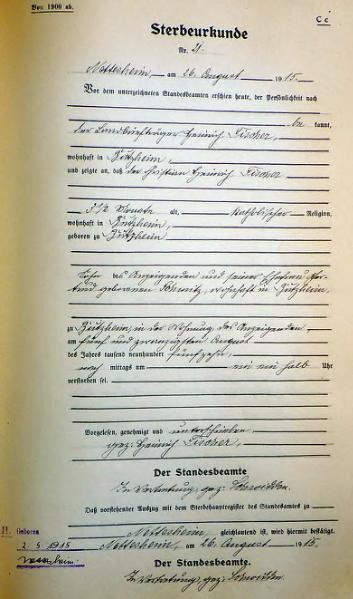 Von 1900 ab.
C c
Sterbeurkunde
Nr. 21.
Nettersheim, am 26. August 1915.
Vor dem unterzeichneten Standesbeamten erschien heute, der Persönlichkeit nach
be kannt,
der Landbriefträger Heinrich Fischer,
wohnhaft in
und zeigte an, daß der Christian Heinrich Fischer,
5 1/2 Monate alt, katholischer Religion,
wohnhaft in
geboren zu
Sohn des Anzeigenden und seiner Ehefrau
geborenen wohnhaft in
zu in der Wohnung des Anzeigenden
am fünf und zwanzigsten August
des Jahres tausend neunhundert fünfzehn,
nach mittags um ein halb Uhr
verstorben sei.
Vorgelesen, genehmigt und unterschrieben
gez. Heinrich Fischer,
Der Standesbeamte
In Vertretung, gez.
Daß vorstehender Auszug mit dem Sterbehauptregister des Standesamts zu
Nettersheim, gleichlautend ist, wird hiermit bestätigt.
Geboren
1915
Nettersheim, am 26. August 1915.
Der Standesbeamte.
In Vertretung, gez.